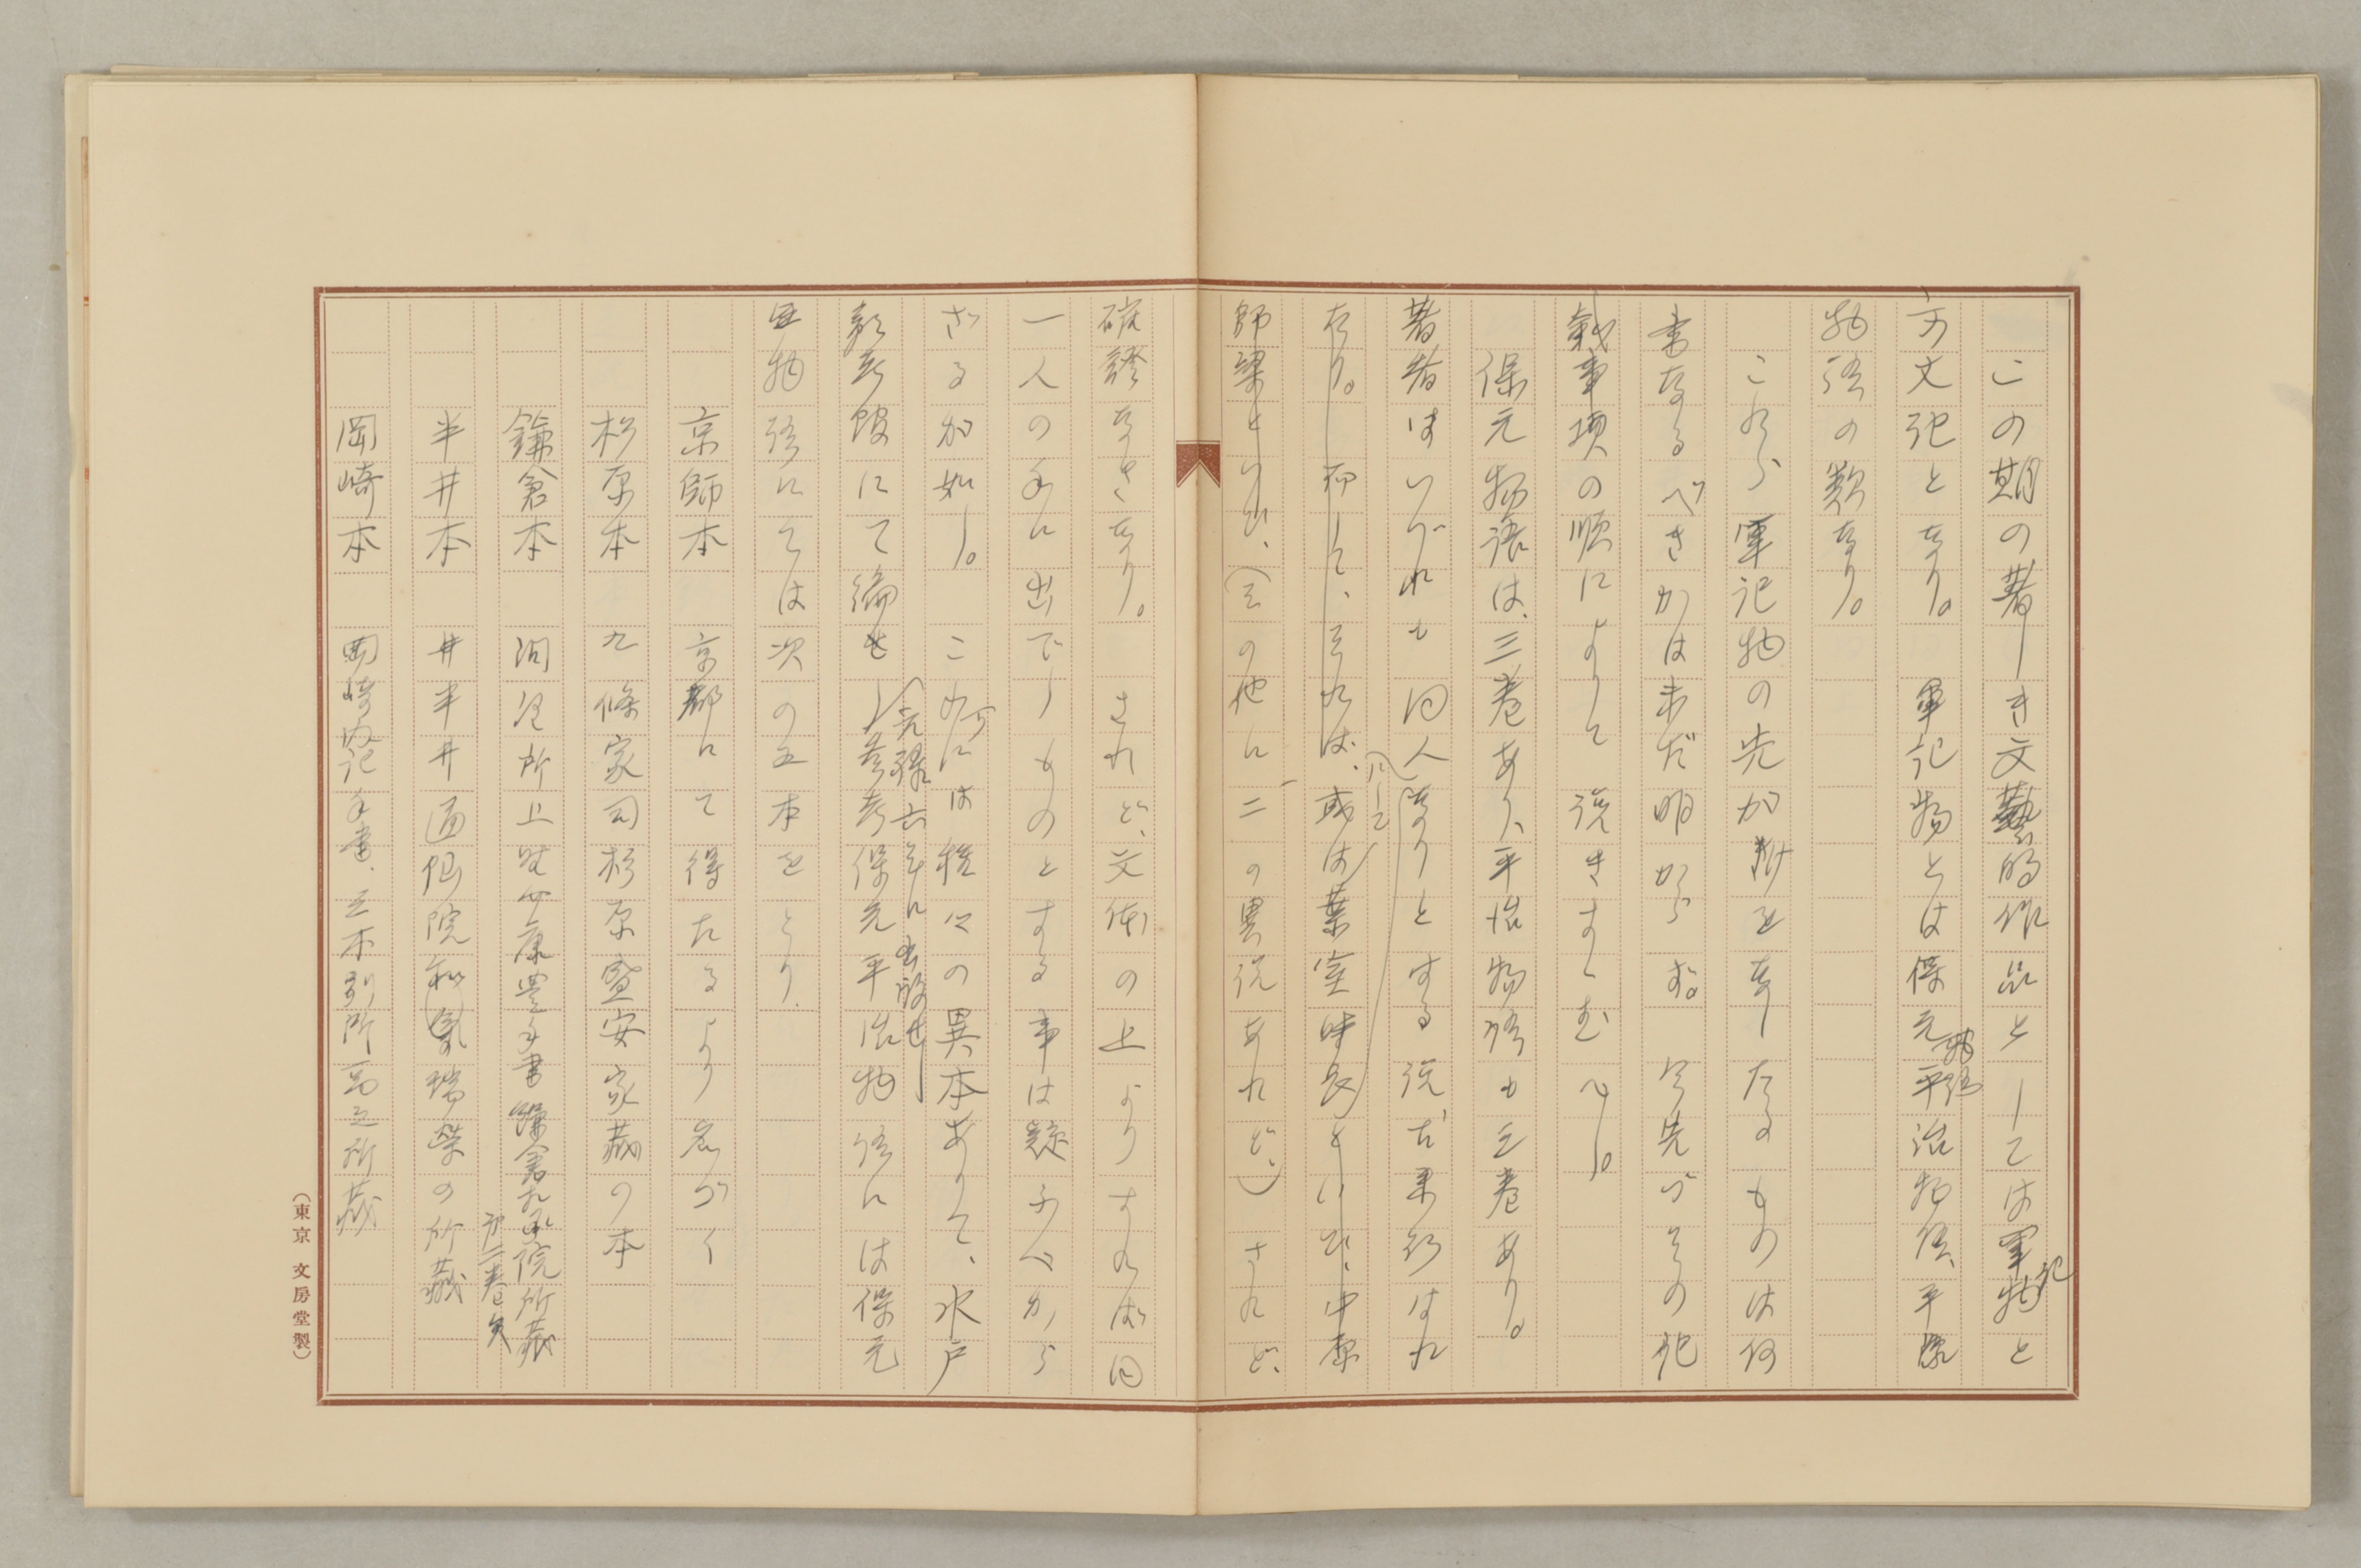 この期の著しき文藝的作品としては軍記物と
方丈記となり。軍記物とは保元物語平治物語、平家
物語の類なり。
これら軍記物の先が附をなしたるものは何
書なるべきかは未だ明からず。今先づその記
載事項の順によりて説きすゝむべし。
保元物語は、三巻あり、平治物語も三巻あり。
著者はいづれも同人にしてなりとする説、古来行はれ
たり。而して、それは、或は葉室時長といひ、中原
師梁といひ、(この他に一二の異説あれど、)されど、
確證なきなり。されど、文体の上よりすれば同
一人の手に出でしものとする事は疑ふべから
ざるが如し。この内には種々の異本ありて、水戸
彰考館にて編せし元禄六年に出版せし参考保元平治物語には保元
物語にては次の五本をとり、
京師本 京都にて得たるより名づく
杉原本 九條家司杉原盛安家蔵の本
鎌倉本 問注所上野介康豊手書鎌倉相承院所蔵
欠二巻
半井本 半井通仙院和気瑞策の所蔵
岡崎本 岡崎内記手書、三木別所所蔵
(東京 文房堂製)